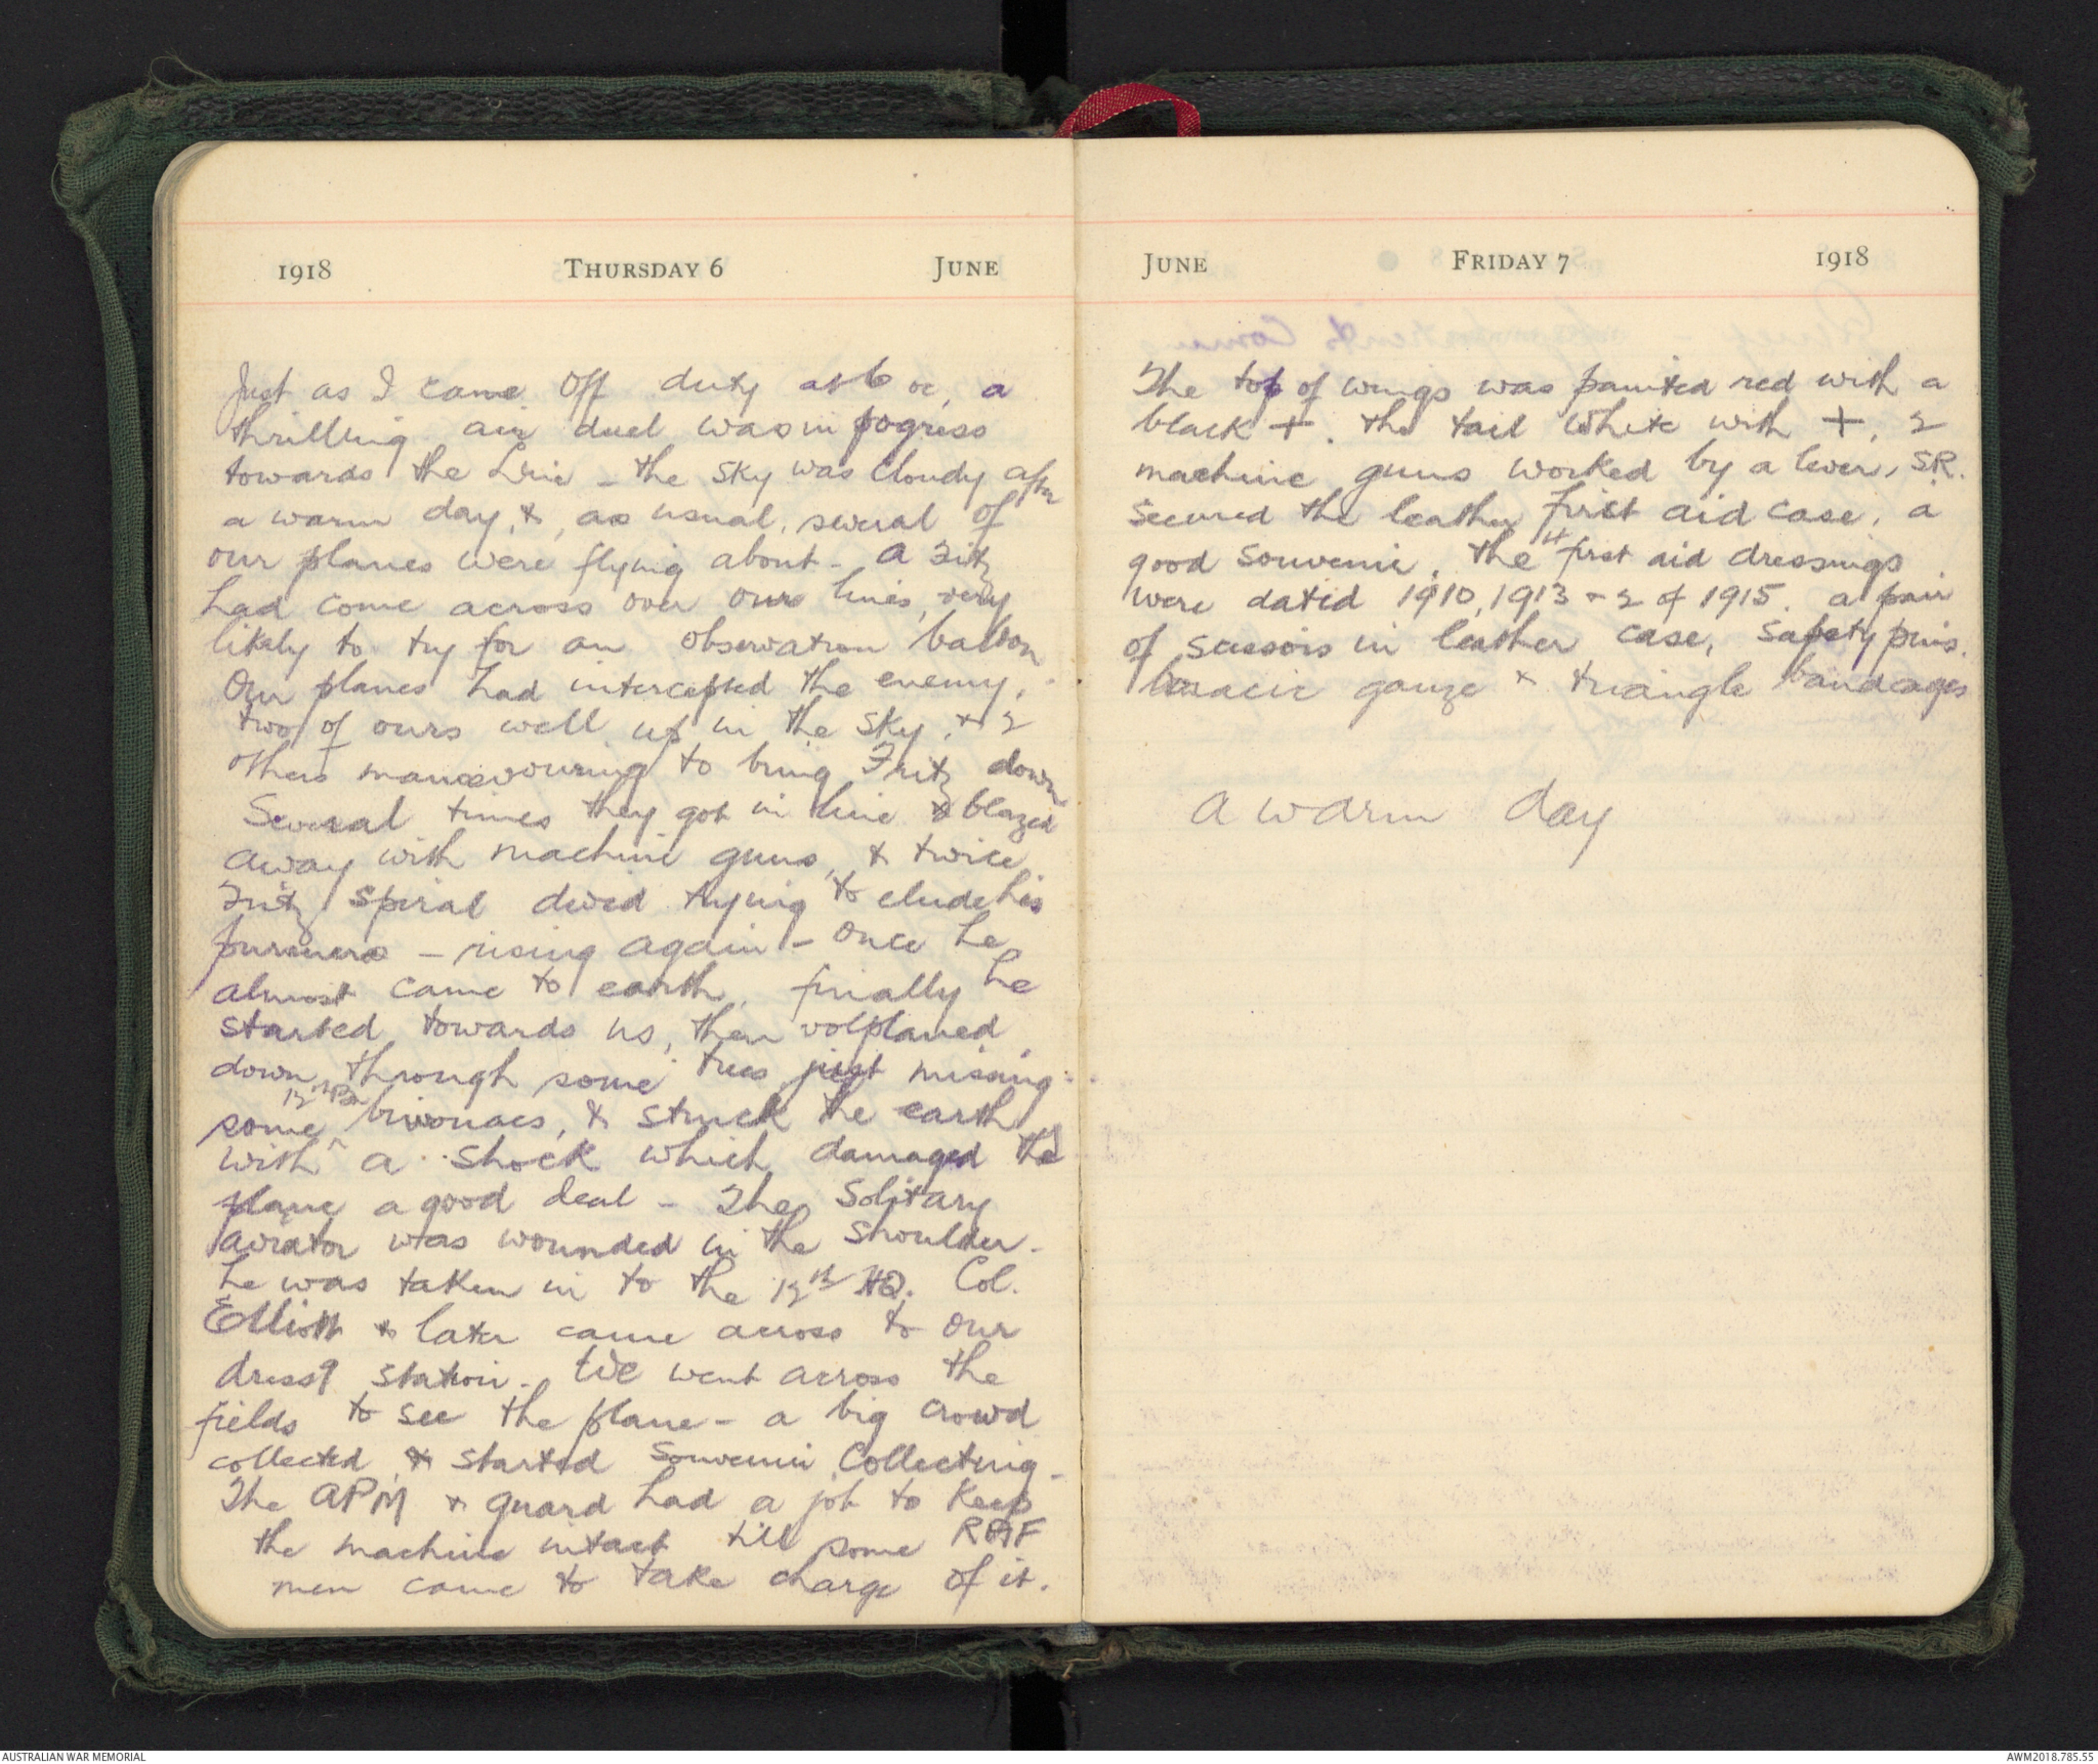 1918 THURSDAY 6 JUNE
Just as I came off duty at 6 oc, a
thrilling air duel was in pogress
towards the Line - the sky was cloudy after
a warm day, & as usual, several of
our planes were flying about - A Fritz
had come across over our lines, very
likely to try for an observation balloon
Our planes had intercepted the enemy,
two of ours well up in the sky, & 2
others manoeuvouring to bring Fritz down
Several times they got in line & blazed
away with machine guns, & twice
Fritz spiral dived trying to elude his
pursuers - rising again - Once he
almost came to earth, finally he
started towards us, then volplaned
down through some trees just missing
some 12th Bn bivouacs, & struck the earth
with a shock which damaged the
plane a good deal - The Solitary
aviator was wounded in the shoulder -
he was taken in to the 12th HQ. Col.
Elliott & later came across to our
dressg station. We went across the
fields to see the plane - a big crowd
collected & started souvenir collecting -
The APM & guard had a job to keep
the machine intact till some RAF
men came to take charge of it.
JUNE FRIDAY 7 1918
The top of wings was painted red with a
black +. the tail white with +, 2
machine guns worked by a lever, SR.
secured the leather first aid case, a
good souvenir. The first aid dressings
were dated 1910, 1913 & 2 of 1915. a pair
of scissors in leather case, safety pins.
boracic gauze & triangle bandages
A warm day
AUSTRALIAN WAR MEMORIAL AWM2018.785.35